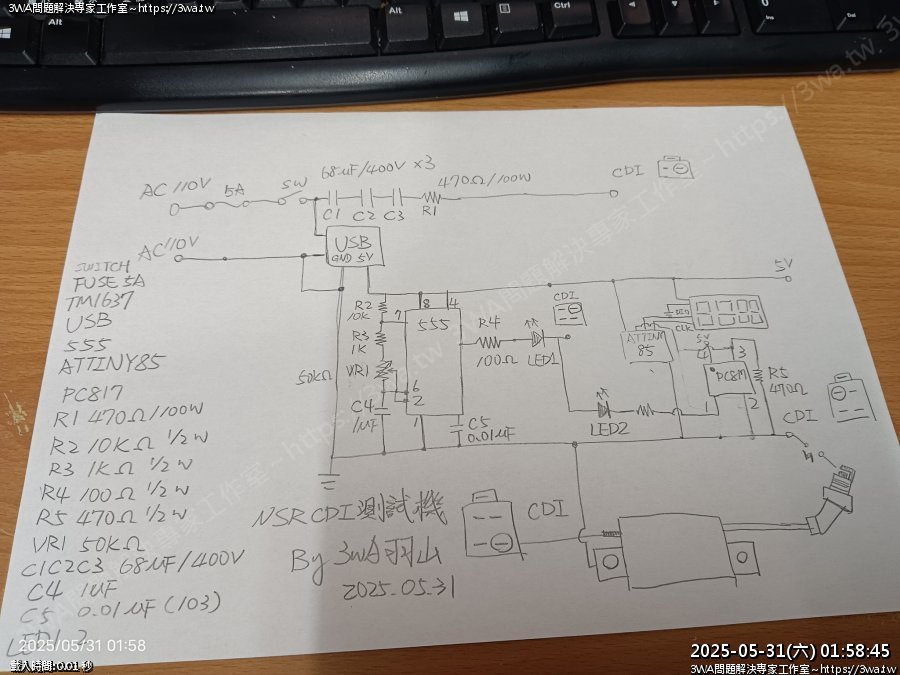 3WA問題解決專家工作室~https://3wa.tw
Alt
Alt
Ctrl
Ins
Del
68uF/400V x3
CDI
AC 110V
5A
SW
470Ω/100W
C1
C2
C3
R1
AC 110V
USB
GND 5V
5V
SWITCH
FUSE 5A
TM1637
USB
555
ATTINY85
PC817
R1 470Ω/100W
R2 10KΩ 1/2W
R3 1KΩ 1/2W
R4 100Ω 1/2W
R5 470Ω 1/2W
VR1 50KΩ
C1C2C3 68uF/400V
C4 1uF
C5 0.01uF (103)
LED1 2
R2
10K
7
8
4
555
R3
1K
VR1
50KΩ
6
2
C4
1uF
1
C5
0.01uF
R4
100Ω
LED1
CDI
LED2
DIO
CLK
ATTINY
85
5V
4
3
PC817
1
2
R5
470Ω
CDI
NSR CDI測試機
By 3WA羽山
2025.05.31
CDI
2025/05/31 01:58
載入時間:0.01 秒
2025-05-31(六) 01:58:45
3WA問題解決專家工作室~https://3wa.tw
3WA問題解決專家工作室~https://3wa.tw